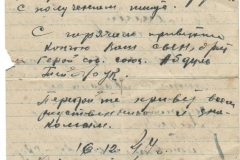 с получением письма.
С горячим приветом
Ваш сын, брат
Герой сов. союза Абдула
Передайте привет всем
родственникам и зна-
комым.
16.12.44